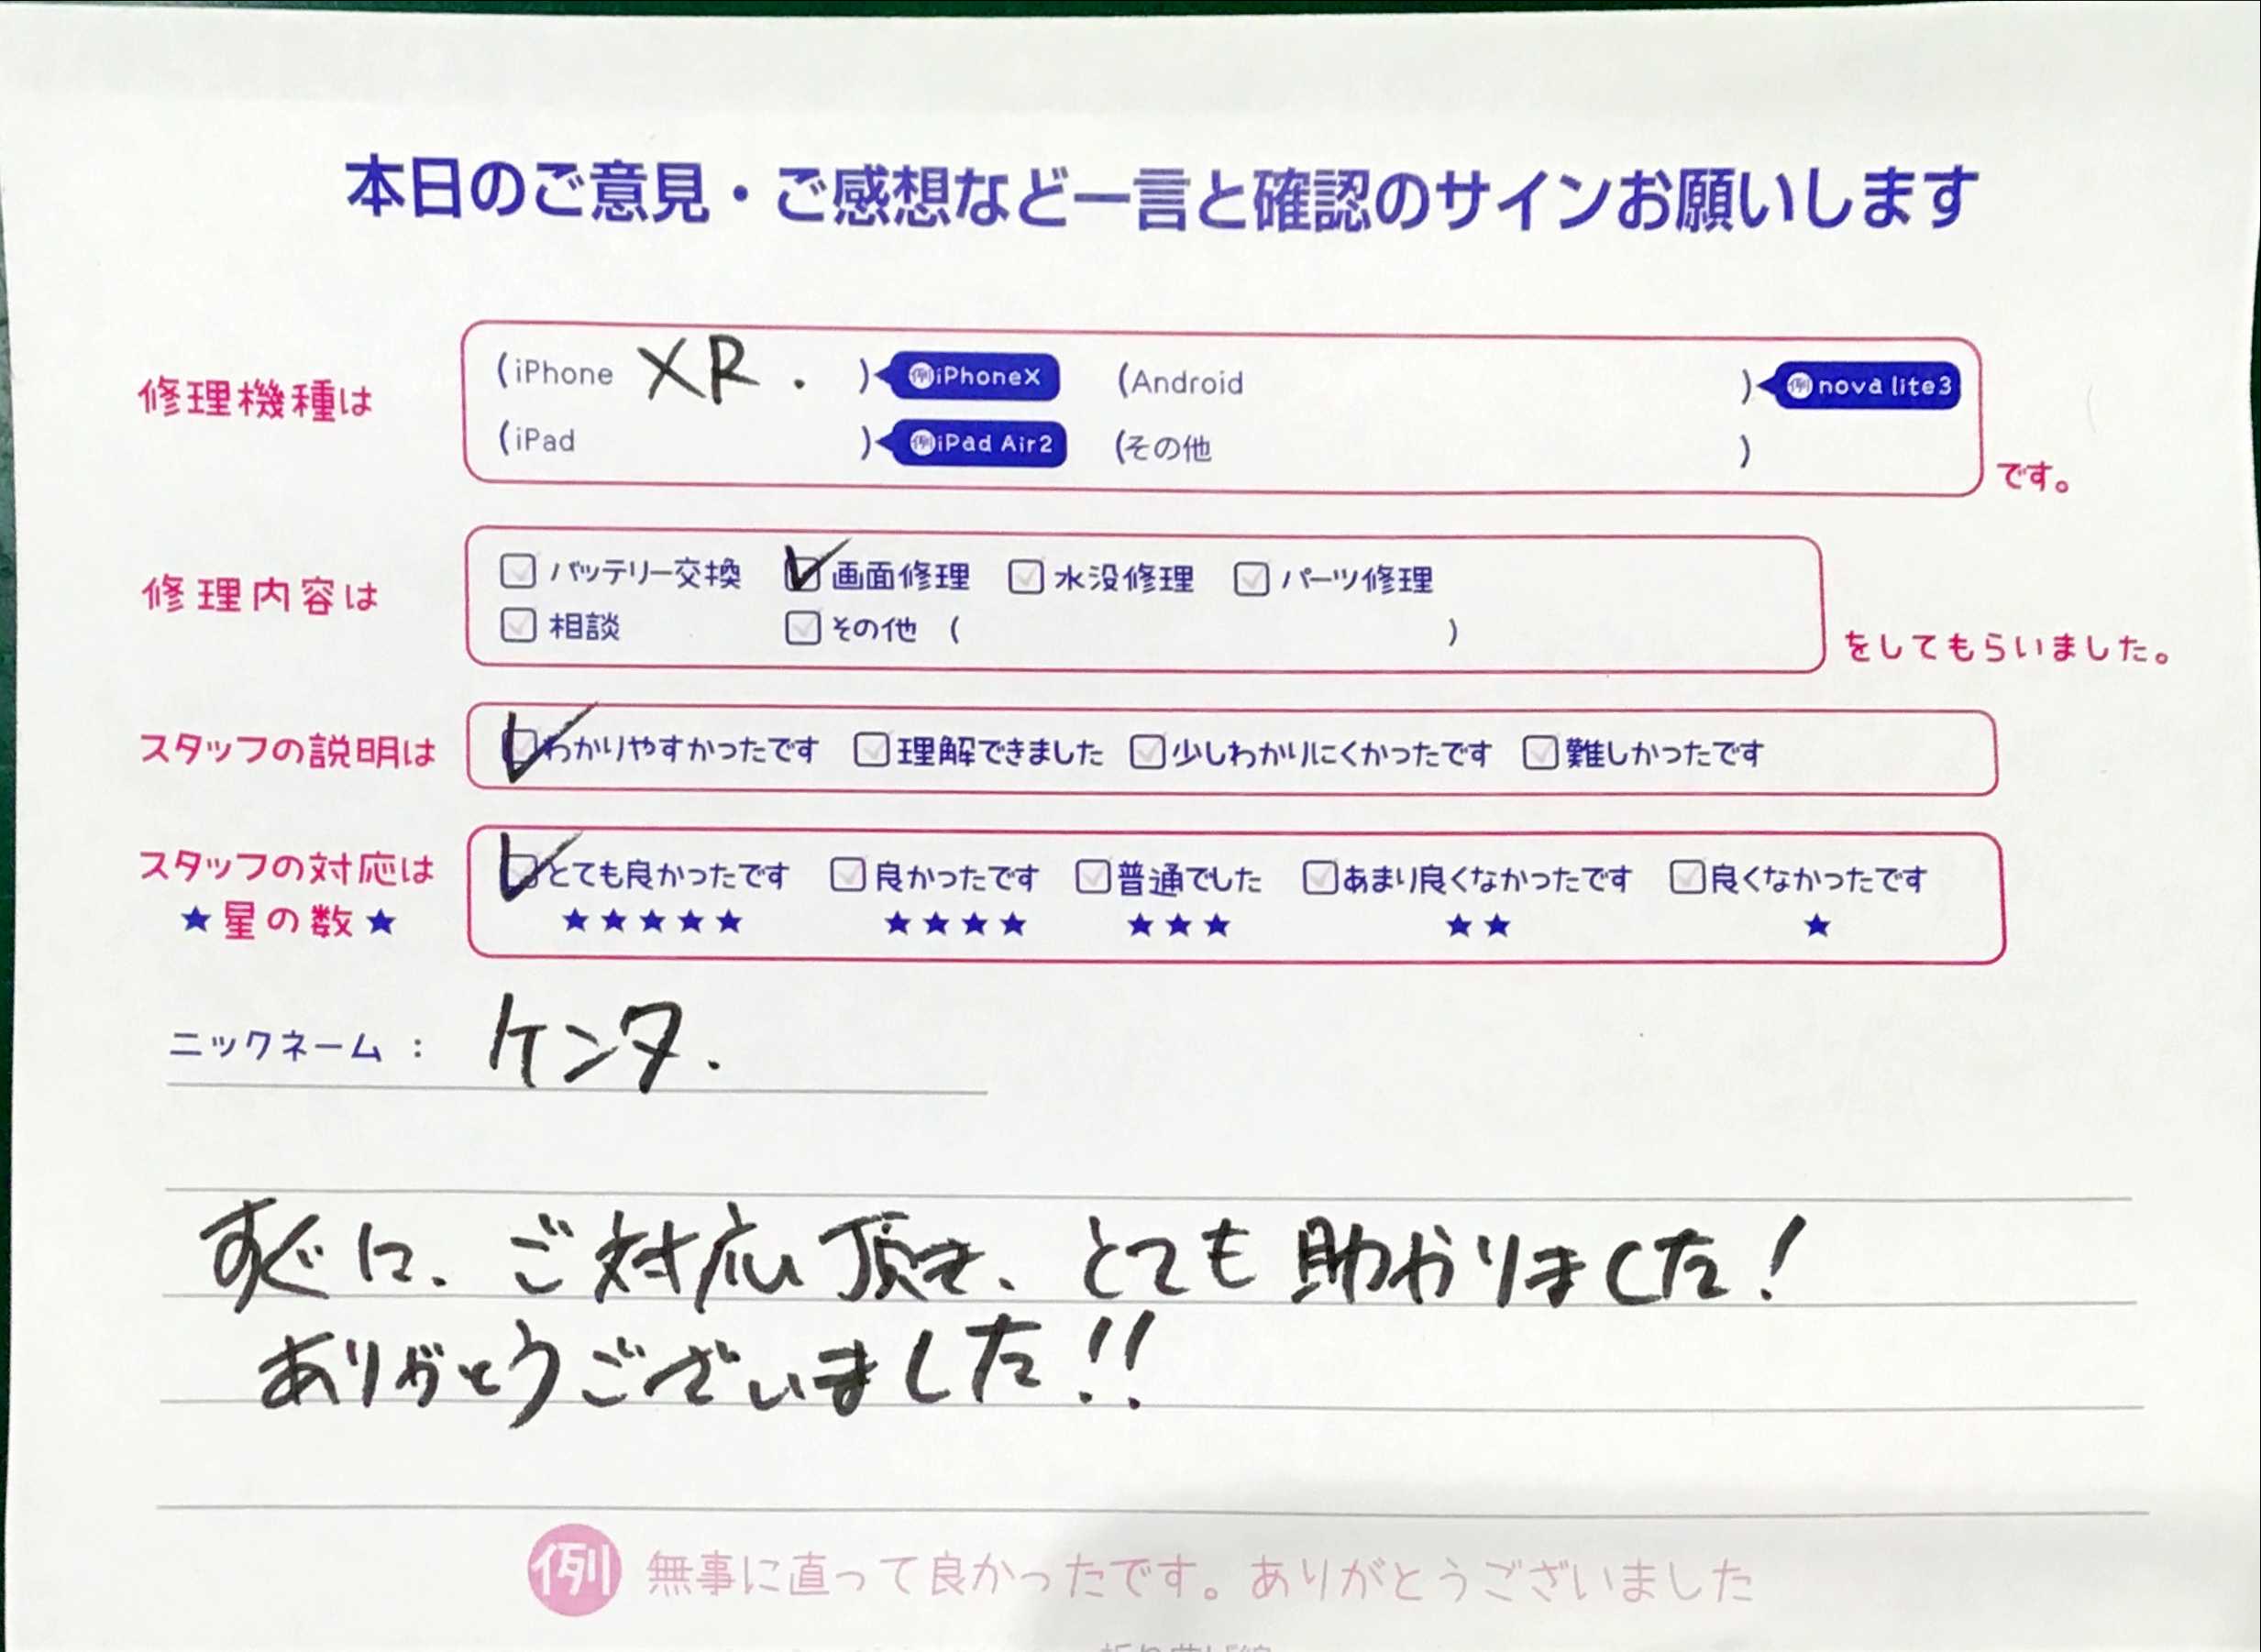 本日のご意見・ご感想など一言と確認のサインお願いします
修理機種は
(iPhone XR. ) 例iPhoneX (Android ) 例nova lite3
(iPad ) 例iPad Air2 (その他 )
です。
修理内容は
バッテリー交換 画面修理 水没修理 パーツ修理
相談 その他 ( )
をしてもらいました。
スタッフの説明は
わかりやすかったです 理解できました 少しわかりにくかったです 難しかったです
スタッフの対応は
★星の数★
とても良かったです 良かったです 普通でした あまり良くなかったです 良くなかったです
★★★★★ ★★★★ ★★★ ★★ ★
ニックネーム： ケンタ.
すぐに、ご対応頂き、とても助かりました！
ありがとうございました!!
例 無事に直って良かったです。ありがとうございました